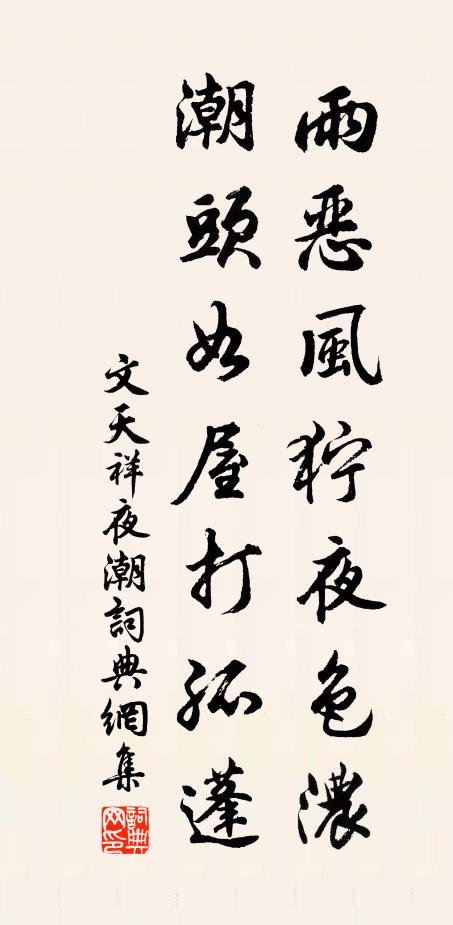 雨惡風狞夜色濃
潮頭如屋打孤蓬
文天祥夜潮詞典網集
詞典網印